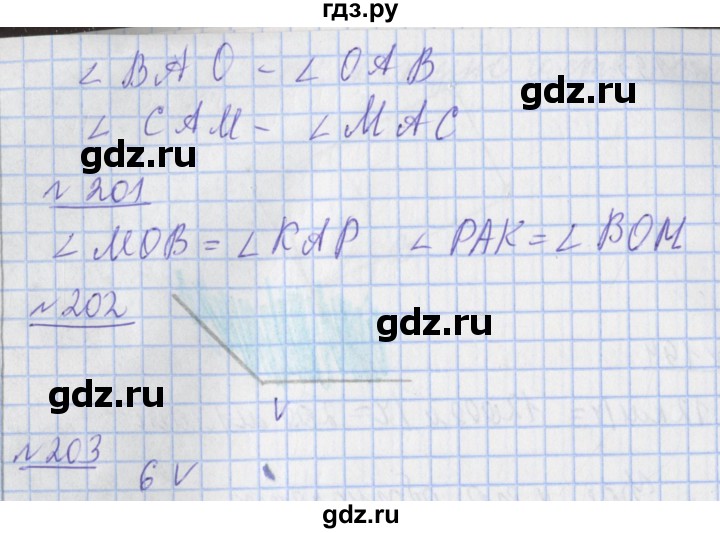 гдз.ру
∠ BAO - ∠ OAB
gdz.ru
∠ CAM - ∠ MAC
gdz.ru
№ 201
∠ MOB = ∠ KAP ∠ PAK = ∠ BOM
№ 202
gdz.ru
gdz.ru
V
№ 203
6 V
gdz.ru
gdz.ru